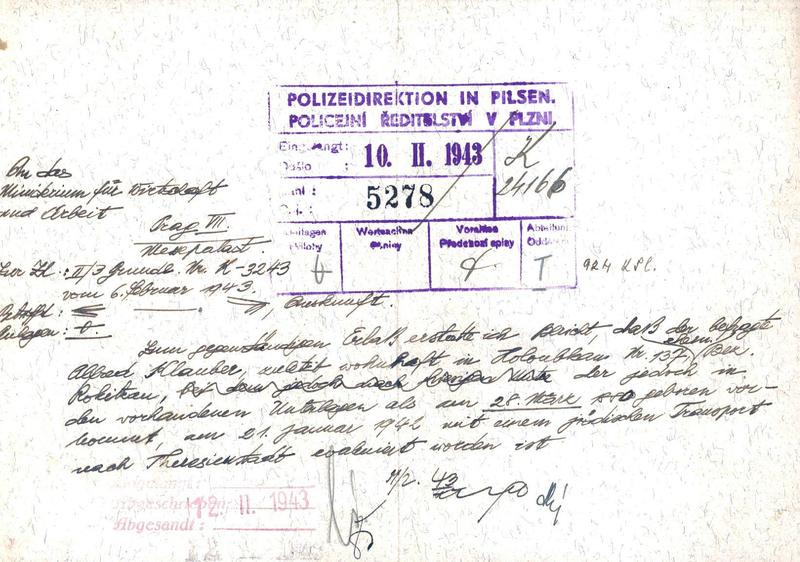 POLIZEIDIREKTION IN PILSEN.
POLICEJNÍ ŘEDITELSTVÍ V PLZNI.
Eingelangt:
Došlo :
10. II. 1943
K
24166
5278
Beilagen
Přílohy
Wertsachen
Ceniny
Vorakten
Předchozí spisy
Abteilung
Odděl.
T
An das
Ministerium für Wirtschaft
und Arbeit
Prag VII.
Messpalast
Zur Zl.: II/3 Grundz. Nr. K-3243
vom 6. Februar 1943.
Betreff:
, Auskunft.
Beilagen:
Zum gegenständigen Erlaß erstatte ich Bericht, daß der befragte
Albert Klauber, zuletzt wohnhaft in Holoubkau Nr. 137, Bez.
Rokitzan, der jedoch in
den vorhandenen Unterlagen als am 28. März geboren vor-
kommt, am 21. Januar 1942 mit einem jüdischen Transport
nach Theresienstadt evakuiert worden ist
11/2. 43
Abgeschrieben:
12. II. 1943
Abgesandt: